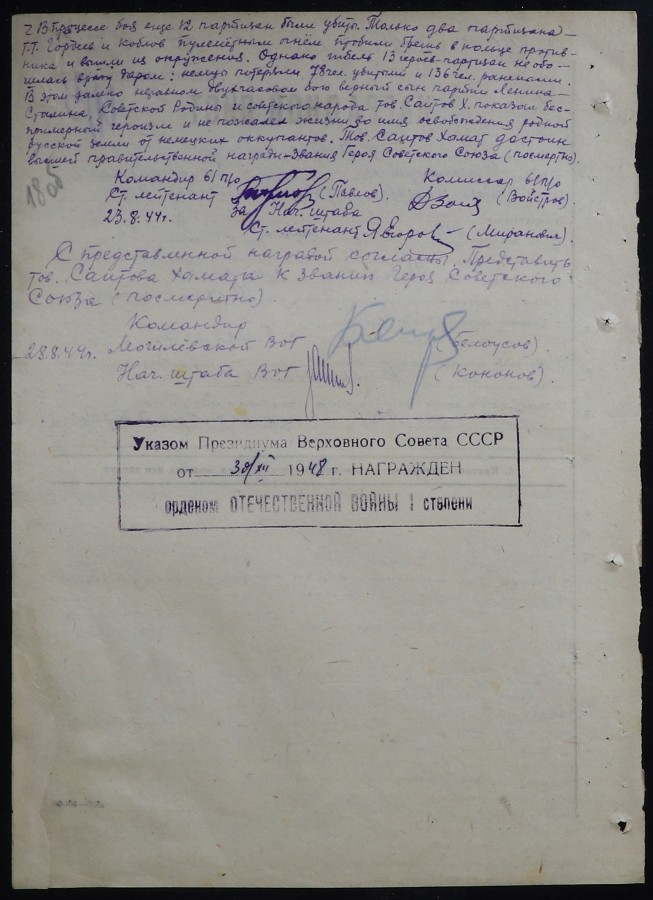 В процессе боя еще 12 партизан были убиты. Только два партизана –
т.т. Гордеев и Коблов пулемётным огнём пробили брешь в кольце против-
ника и вышли из окружения. Однако гибель 13 героев-партизан не обо-
шлась врагу даром: немцы потеряли 78 чел. убитыми и 136 чел. ранеными.
В этом далеко неравном двухчасовом бою верный сын партии Ленина –
Сталина, Советской Родины и советского народа тов. Саитов Х. показал бес-
примерный героизм и не пожалел жизни во имя освобождения родной
русской земли от немецких оккупантов. Тов. Саитов Хамат достоин
высшей правительственной награды – Звания Героя Советского Союза (посмертно).
18об
Командир 61 п/о Комиссар 61 п/о
Ст. лейтенант (Павлов) (Войстров)
23.8.44г. за Нач. штаба
Ст. лейтенант (Миранович)
С представленной наградой согласны. Представить
тов. Саитова Хамата к званию Героя Советского
Союза (посмертно).
Командир
28.8.44г. Могилёвской ВОГ (Белоусов).
Нач. штаба ВОГ (Кононов).
Указом Президиума Верховного Совета СССР
от 30/XII 1948 г. НАГРАЖДЕН
орденом ОТЕЧЕСТВЕННОЙ ВОЙНЫ I степени